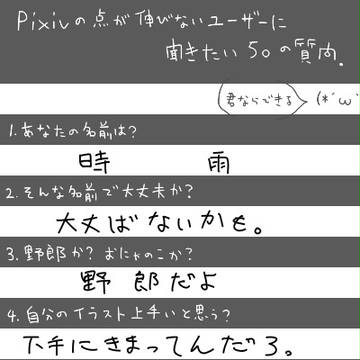 Pixivの点が伸びないユーザーに
聞きたい50の質問。
君ならできる (*´ω`
1.あなたの名前は?
時 雨
2.そんな名前で大丈夫か?
大丈ばないかも。
3.野郎か? おにゃのこか?
野郎だよ
4.自分のイラスト上手いと思う?
下手にきまってんだろ。